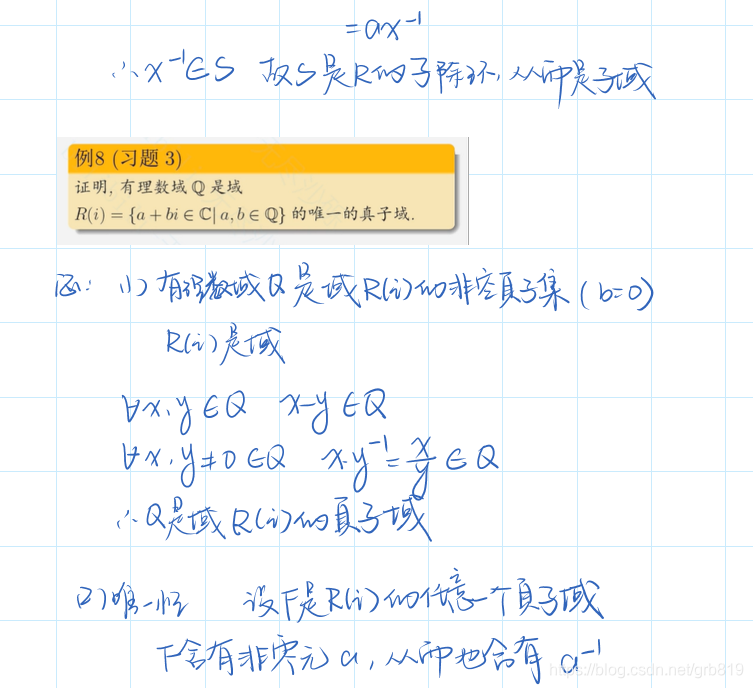 = ax⁻¹
∴x⁻¹∈S 故S是R的子除环,从而是子域
例8 (习题 3)
证明, 有理数域 ℚ 是域
R(i) = {a + bi ∈ ℂ| a, b ∈ ℚ} 的唯一的真子域.
证: (1) 有理数域Q是域R(i)的非空真子集 (b=0)
R(i)是域
∀x,y∈Q x-y∈Q
∀x,y≠0∈Q x·y⁻¹=x/y∈Q
∴Q是域R(i)的真子域
(2)唯一性 设F是R(i)的任意一个真子域
F含有非零元a,从而也含有 a⁻¹
https://blog.csdn.net/grb819